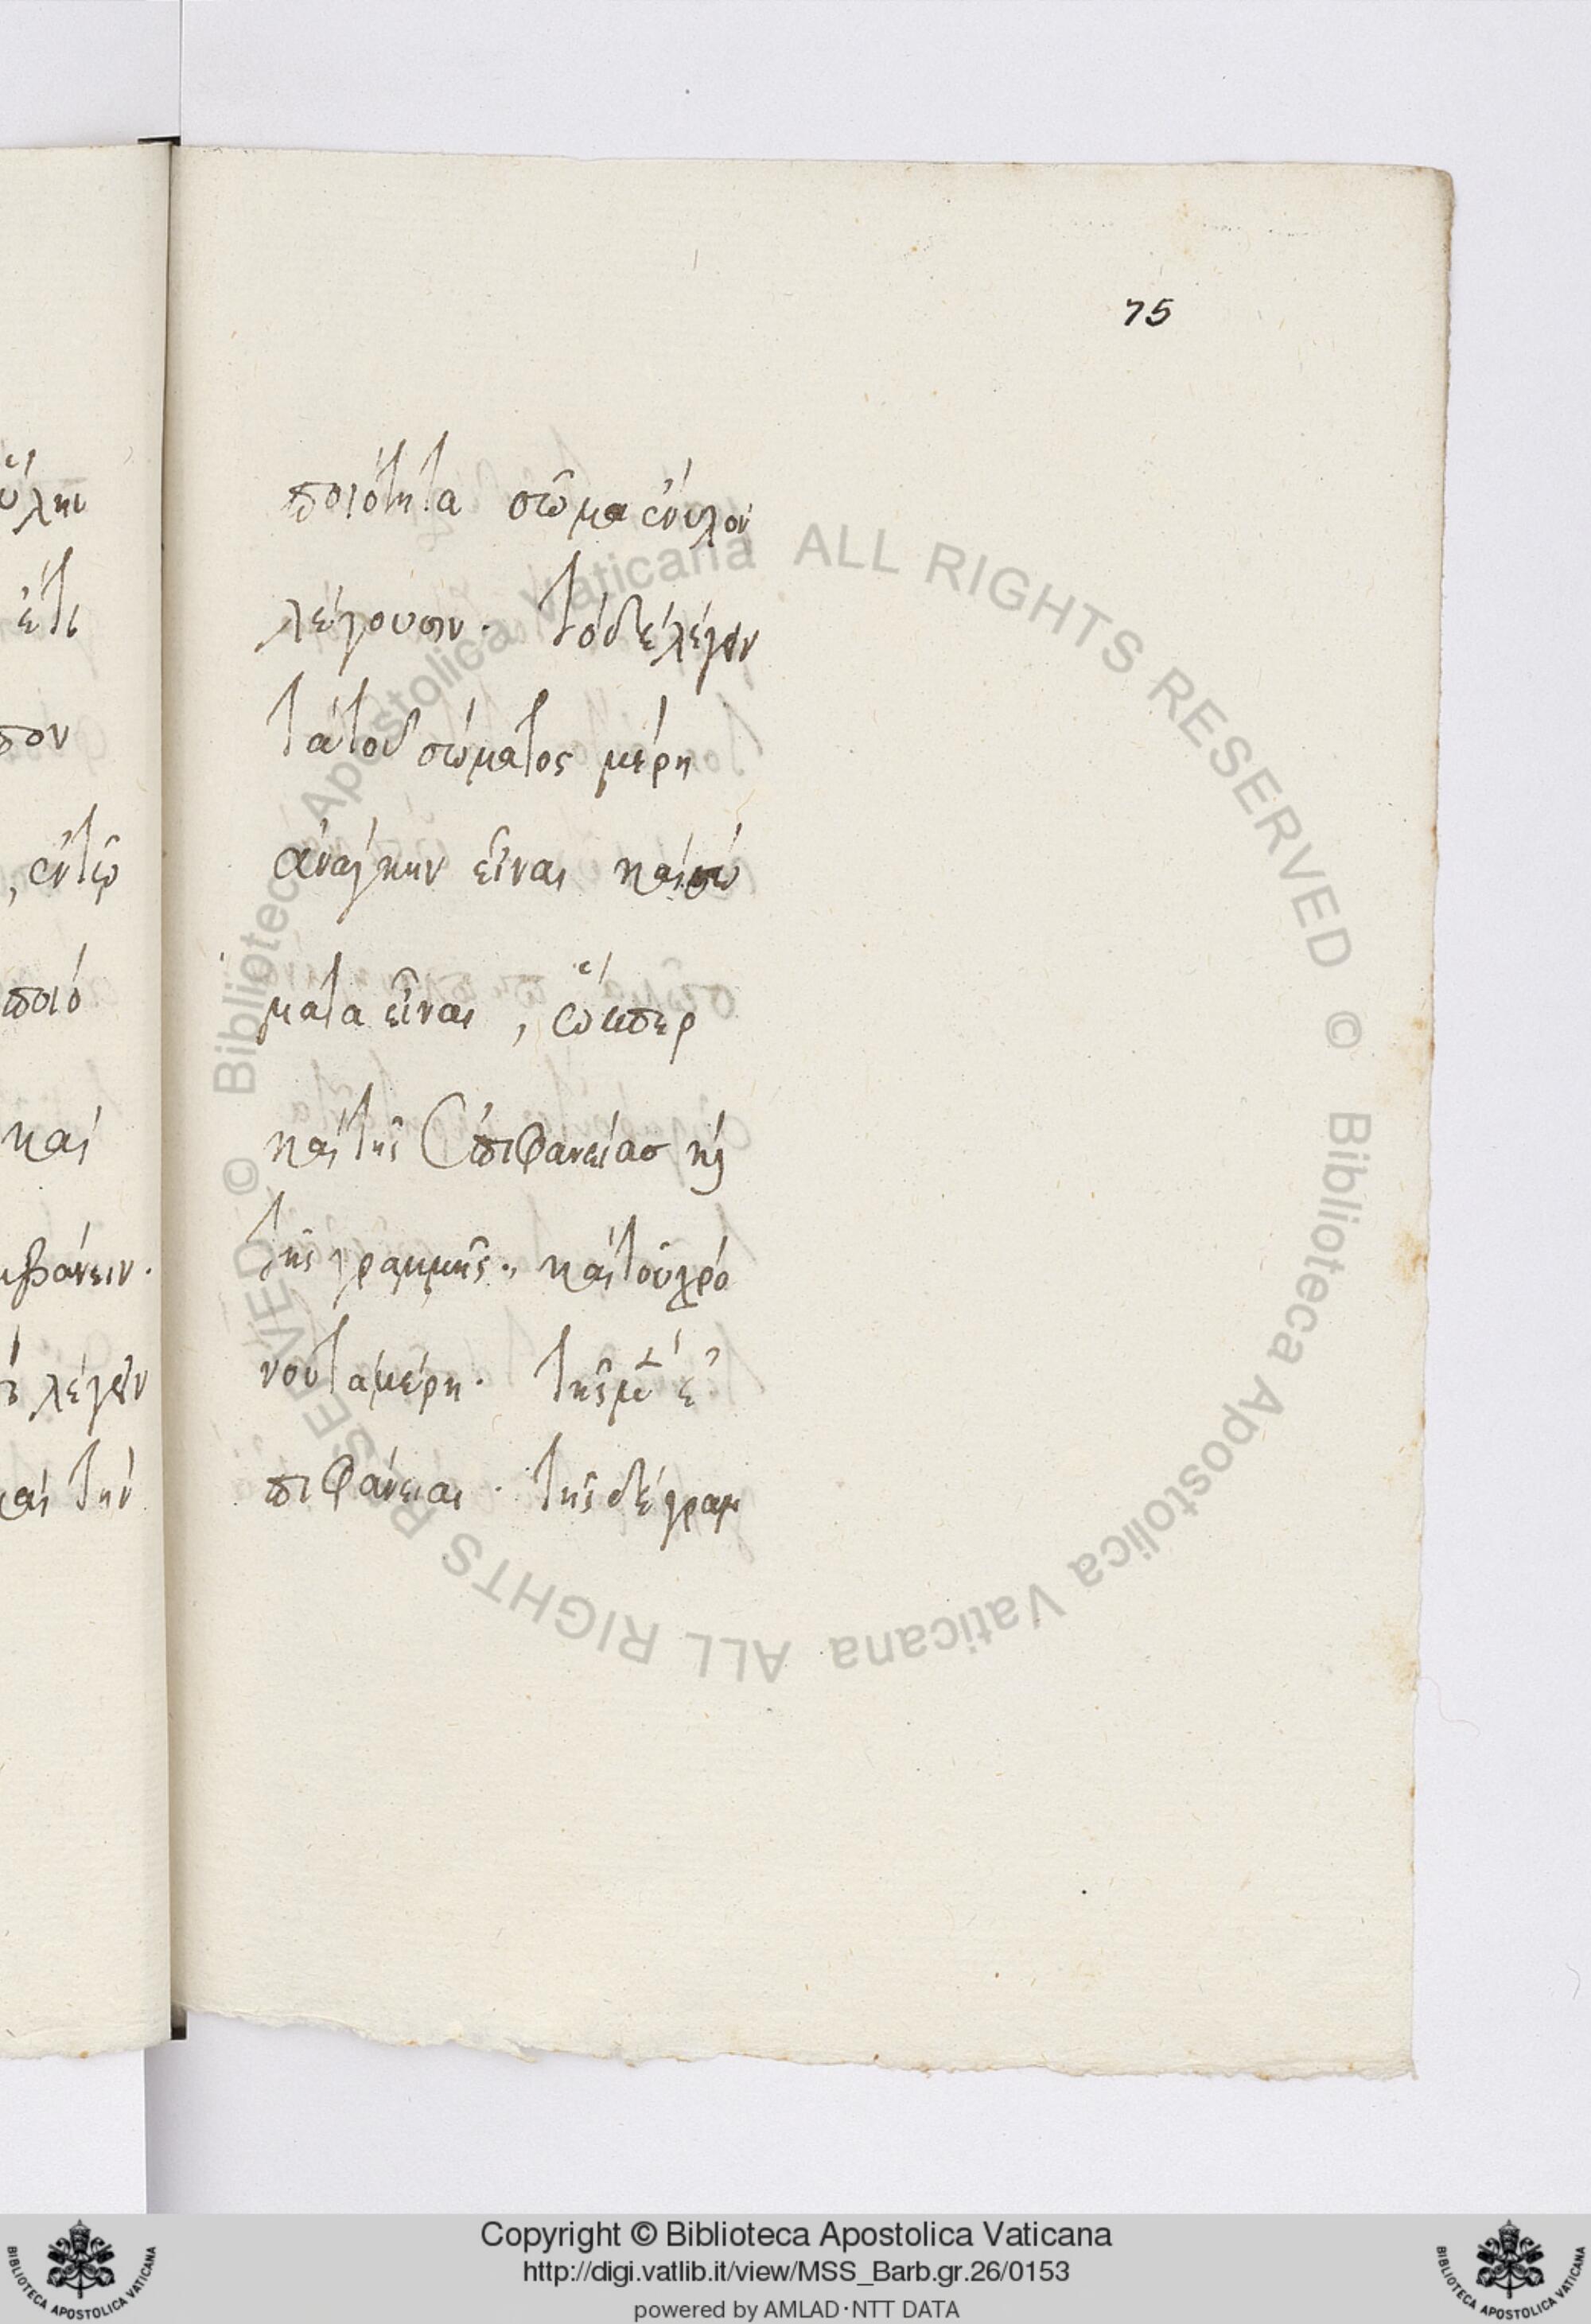 75
ύλην
ἔτι
πον
, ἐντῶ
ποιό
καὶ
μβάνειν.
λέγειν
καὶ τὴν
ποιότητα σῶμα ἔνυλον
λέγουσιν. τὸ δὲ λέγειν
τὰ τοῦ σώματος μέρη
ἀνάγκην εἶναι καὶ σώ
ματα εἶναι, ὥσπερ
καὶ τῆς ἐπιφανείασ κὶ
τῆς γραμμῆς., καὶ τοῦ χρό
νου τὰ μέρη. τῆς μὲν ἐ
πιφάνειαι. τῆς δὲ γραμ
© Biblioteca Apostolica Vaticana ALL RIGHTS RESERVED © Biblioteca Apostolica Vaticana ALL RIGHTS RESERVED
Copyright © Biblioteca Apostolica Vaticana
http://digi.vatlib.it/view/MSS_Barb.gr.26/0153
powered by AMLAD·NTT DATA
BIBLIOTECA APOSTOLICA VATICANA
BIBLIOTECA APOSTOLICA VATICANA